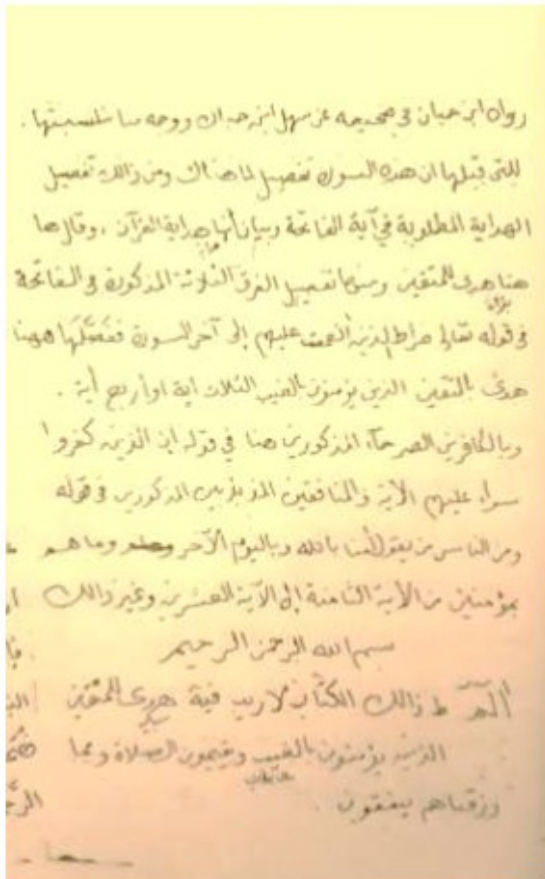 رواه ابن حبان في صحيحه عن سهل ابن ووجه مناسبتها.
للتي قبلها ان هذه السورة تفصيل لما هناك ومن ذالك تفصيل
الهداية المطلوبة في آية الفاتحة وبيان أنها هداية القرآن، وقال ها
هنا هدى للمتقين ومنها تفصيل الفرق الثلاثة المذكورة في الفاتحة
في قوله تعالى صراط الذين أنعمت عليهم إلى آخر السورة ففصّلها ههنا
هدى بالمتقين الذين يؤمنون بالغيب الثلاث آية او أربع أية.
وبالكافرين الصرحاء المذكورين هنا في قوله ان الذين كفروا
سواء عليهم الأية والمنافقين المذبذبين المذكورين في قوله
ومن الناس من يقول أمنا بالله وباليوم الآخر وما هم
بمؤمنين من الأية الثامنة إلى الآية العشرين وغير ذالك
بسم الله الرحمن الرحيم
الٓمٓ ط ذالك الكتٰب لاريب فية هدى للمتقين
الذين يؤمنون بالغيب ويقيمون الصلاة ومما
رزقناهم ينفقون.